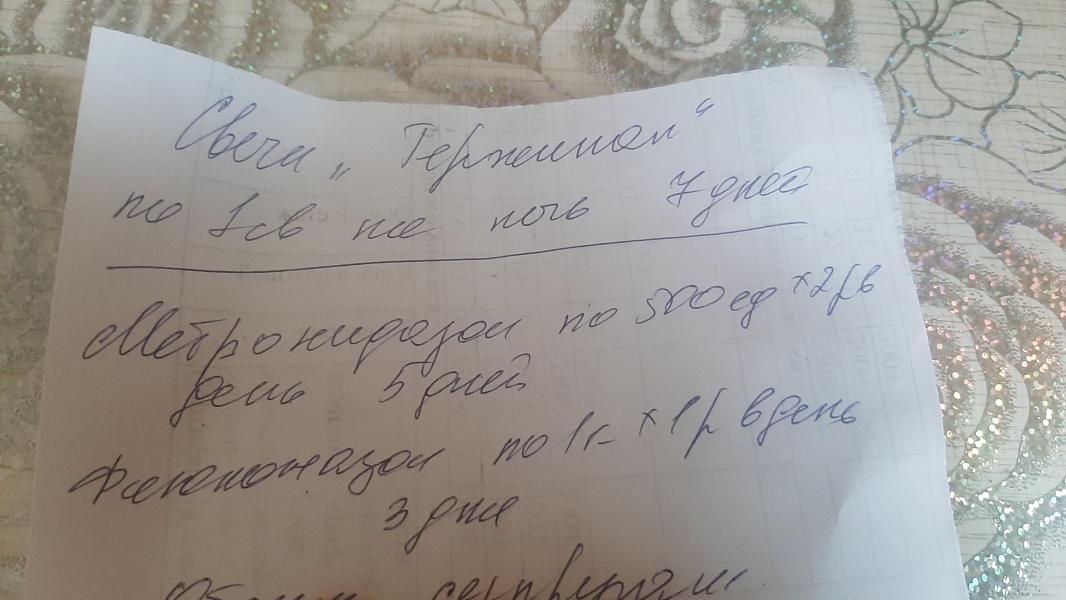 Свечи „Тержинан“
по 1св на ночь 7 дней
Метронидазол по 500 ед ×2 р в
день 5 дней
Флюконазол по 1к ×1 р в день
3 дня